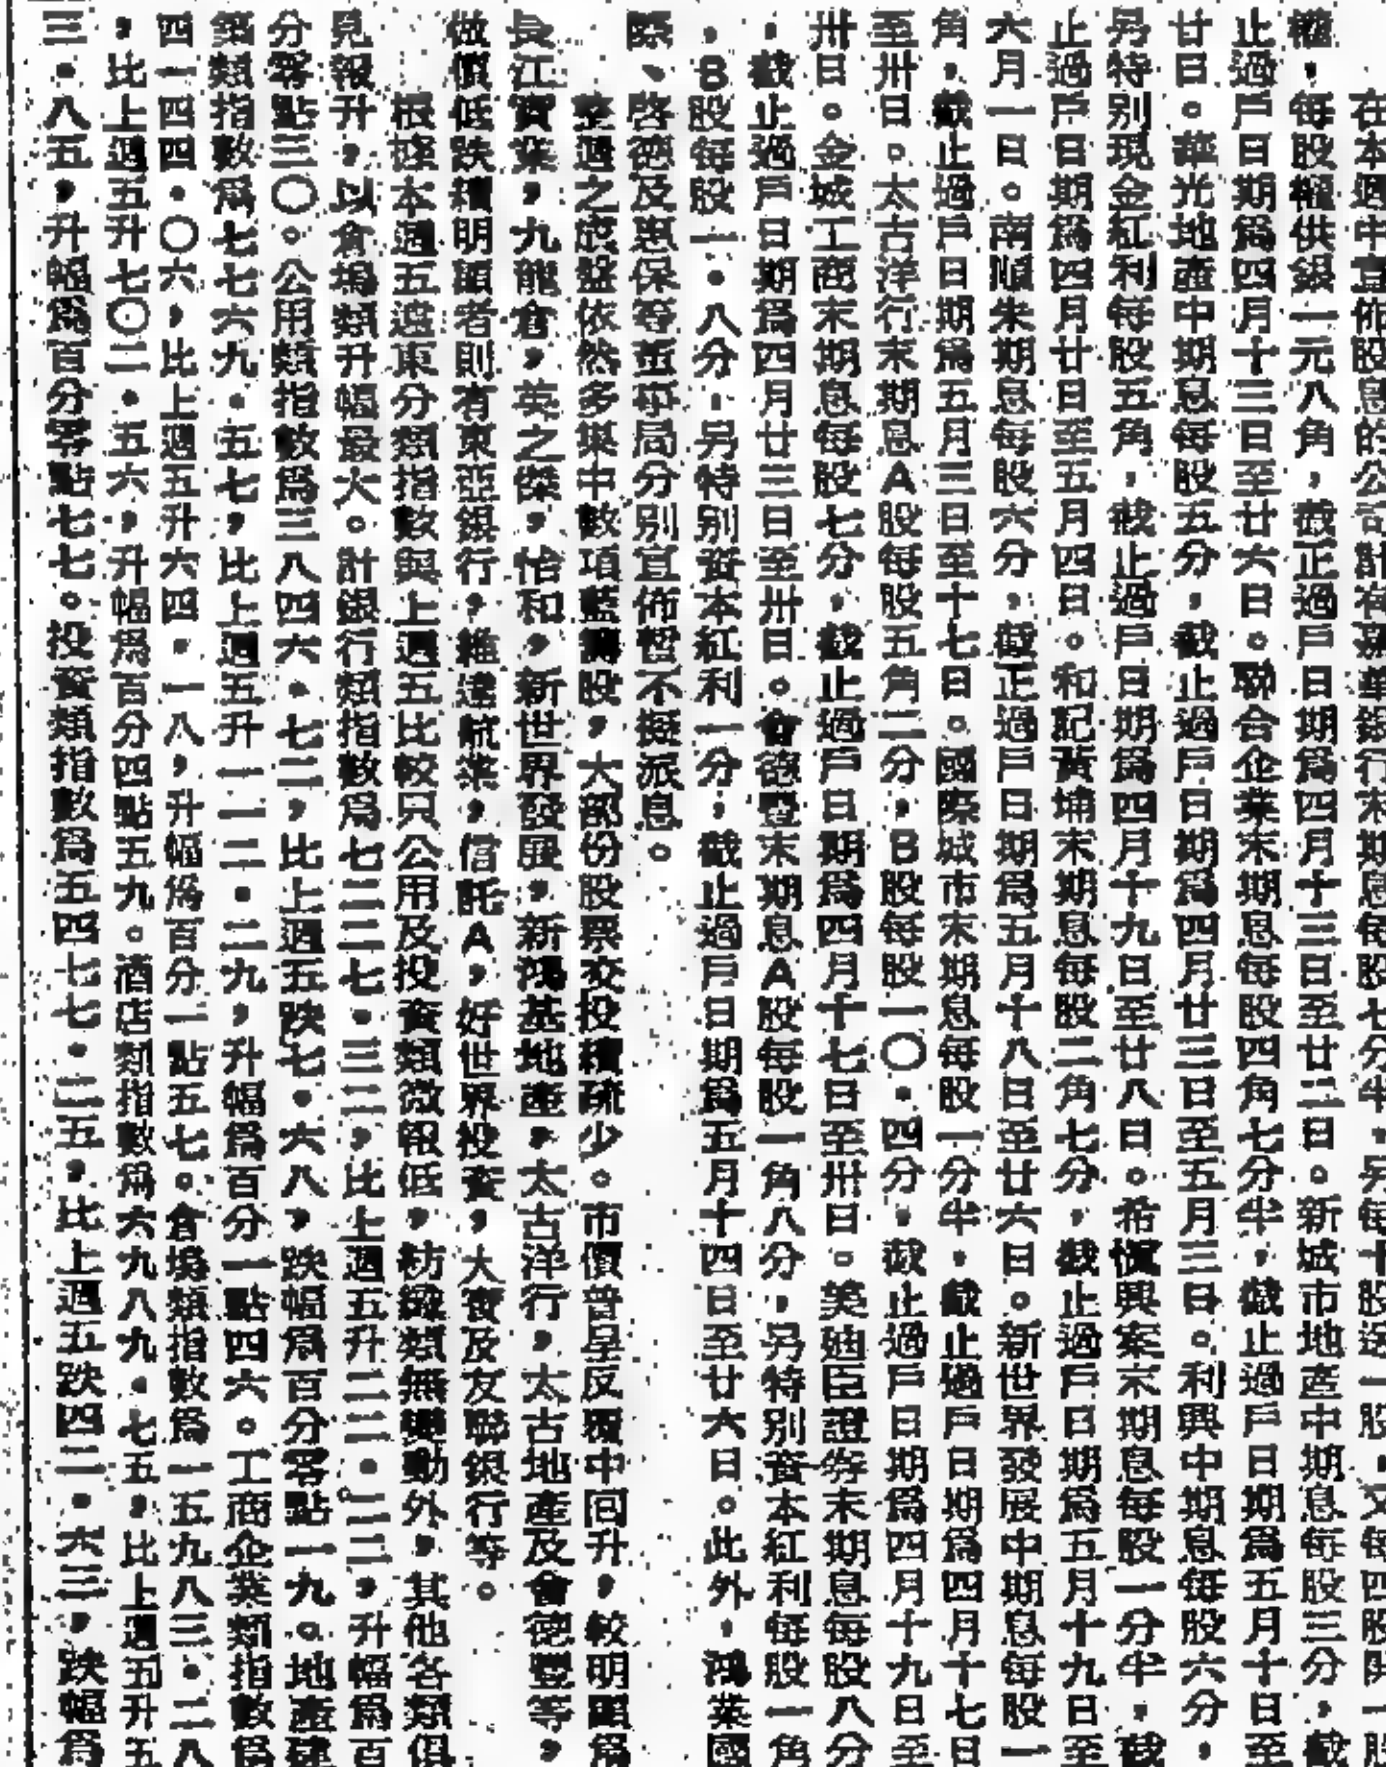 在本週中宣佈股息的公司計有
權，每股權供銀一元八角，截止過戶日期爲四月十三日至廿二日。新城市地產中期息每股三分，截
止過戶日期爲四月十三日至廿六日。聯合企業末期息每股四角七分半，截止過戶日期爲五月十日至
廿日。華光地產中期息每股五分，截止過戶日期爲四月廿三日至五月三日。利興中期息每股六分，
另特別現金紅利每股五角，截止過戶日期爲四月十九日至廿八日。希慎興業末期息每股一分半，截
止過戶日期爲四月廿日至五月四日。和記黃埔末期息每股二角七分，截止過戶日期爲五月十九日至
六月一日。南順末期息每股六分，截止過戶日期爲五月十八日至廿六日。新世界發展中期息每股一
角，截止過戶日期爲五月三日至十七日。國際城市末期息每股一分半，截止過戶日期爲四月十七日
至卅日。太古洋行末期息A股每股五角二分，B股每股一〇．四分，截止過戶日期爲四月十九日至
卅日。金城工商末期息每股七分，截止過戶日期爲四月十七日至卅日。美廸臣證劵末期息每股八分
，截止過戶日期爲四月廿三日至卅日。會德豐末期息A股每股一角八分，另特別資本紅利每股一角
，B股每股一．八分，另特別資本紅利一分，截止過戶日期爲五月十四日至廿六日。此外，鴻業國
際、啓德及惠保等董事局分別宣佈暫不擬派息。
整週之成盤依然多集中數項藍籌股，大部份股票交投續疏少。市價普呈反覆中回升，較明顯爲
長江實業，九龍倉，英之傑，怡和，新世界發展，新鴻基地產，太古洋行，太古地產及會德豐等，
做價低跌續明顯者則有東亞銀行，維達航業，信託A，好世界投資，大寶及友聯銀行等。
根據本週五遠東分類指數與上週五比較只公用及投資類微報低，紡織類無變動外，其他各類俱
見報升，以倉塢類升幅最大。計銀行類指數爲七二二七．三二，比上週五升二二．二三，升幅爲百
分零點三〇。公用類指數爲三八四六．七二，比上週五跌七．六八，跌幅爲百分零點一九。地產建
築類指數爲七七六九．五七，比上週五升一一二．二九，升幅爲百分一點四六。工商企業類指數爲
四一四四．〇六，比上週五升六四．一八，升幅爲百分一點五七。倉塢類指數爲一五九八三．二八
，比上週五升七〇二．五六，升幅爲百分四點五九。酒店類指數爲六九八九．七五，比上週五升五
三．八五，升幅爲百分零點七七。投資類指數爲五四七七．二五，比上週五跌四二．六三，跌幅爲